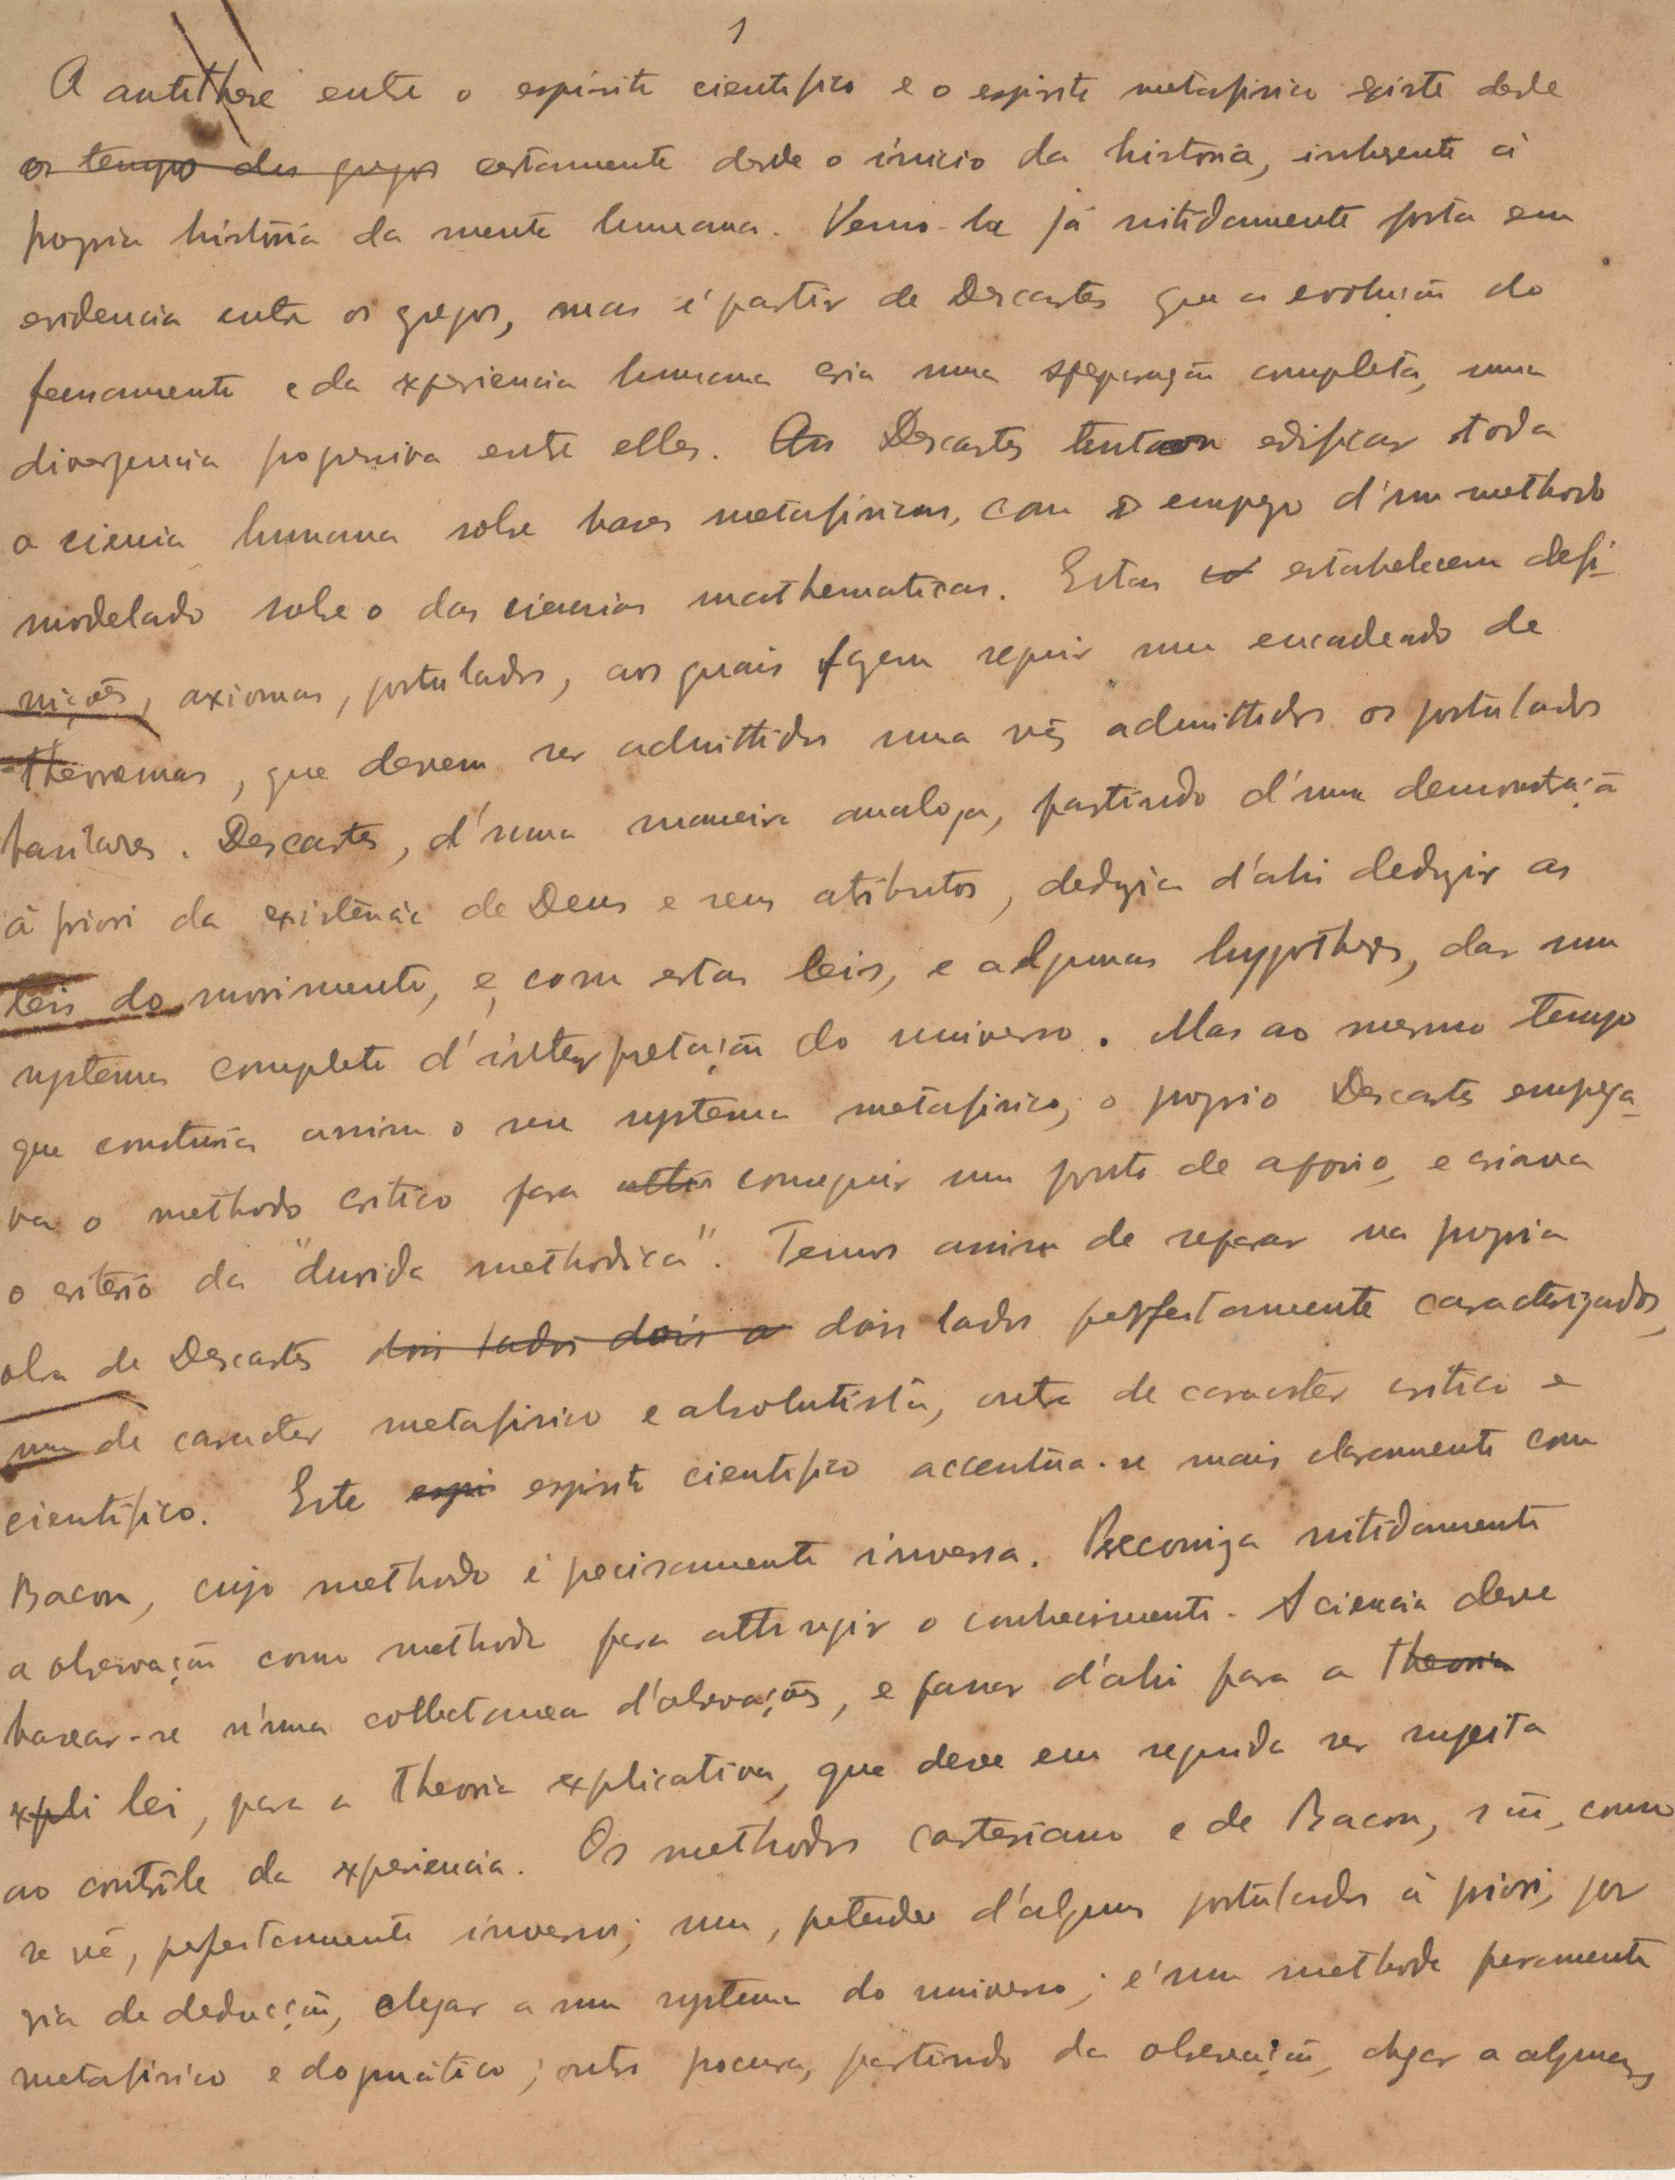 1
A antithese entre o espirito cientifico e o espirito metafisico existe desde
os tempo dos gregos certamente desde o inicio da historia, inherente á
propria história da mente humana. Vemo-la já nitidamente posta em
evidencia entre os gregos, mas é partir de Descartes que a evolução do
pensamento e da experiencia humana cria uma separação completa, uma
divergencia progressiva entre elles. Descartes tentou edificar toda
a ciencia humana sobre bases metafisicas, com o emprego d'um methodo
modelado sobre o das ciencias mathematicas. Estas estabelecem defi-
nições, axiomas, postulados, aos quais fazem seguir um encadeado de
theoremas, que devem ser admittidos uma vês admittidos os postulados
basilares. Descartes, d'uma maneira analoga, partindo d'uma demonstração
à priori da existência de Deus e seus atributos, deduzia d'ahi deduzir as
leis do movimento, e, com estas leis, e algumas hypotheses, dar um
systema completo d'interpretação do universo. Mas ao mesmo tempo
que construia assim o seu systema metafisico, o proprio Descartes emprega-
va o methodo critico para conseguir um ponto de apoio, e criava
o critério da "duvida methodica". Temos assim de separar na propria
obra de Descartes dois lados dois a dois lados perfeitamente caracterizados,
um de caracter metafisico e absolutista, outro de caracter critico e
cientifico. Este espi espirito cientifico accentúa-se mais claramente com
Bacon, cujo methodo é precisamente inverso. Preconiza nitidamente
a observação como methodo para attingir o conhecimento. A ciencia deve
basear-se n'uma collectanea d'observações, e passar d'ahi para a theoria
expli lei, para a theoria explicativa, que deve em seguida ser sujeita
ao contrôle da experiencia. Os methodos cartesiano e de Bacon, são, como
se vê, perfeitamente inversos; um, pretender d'alguns postulados à priori, por
via de deducção, chegar a um systema do universo; é um methodo puramente
metafisico e dogmático; outro procura, partindo da observação, chegar a algumas